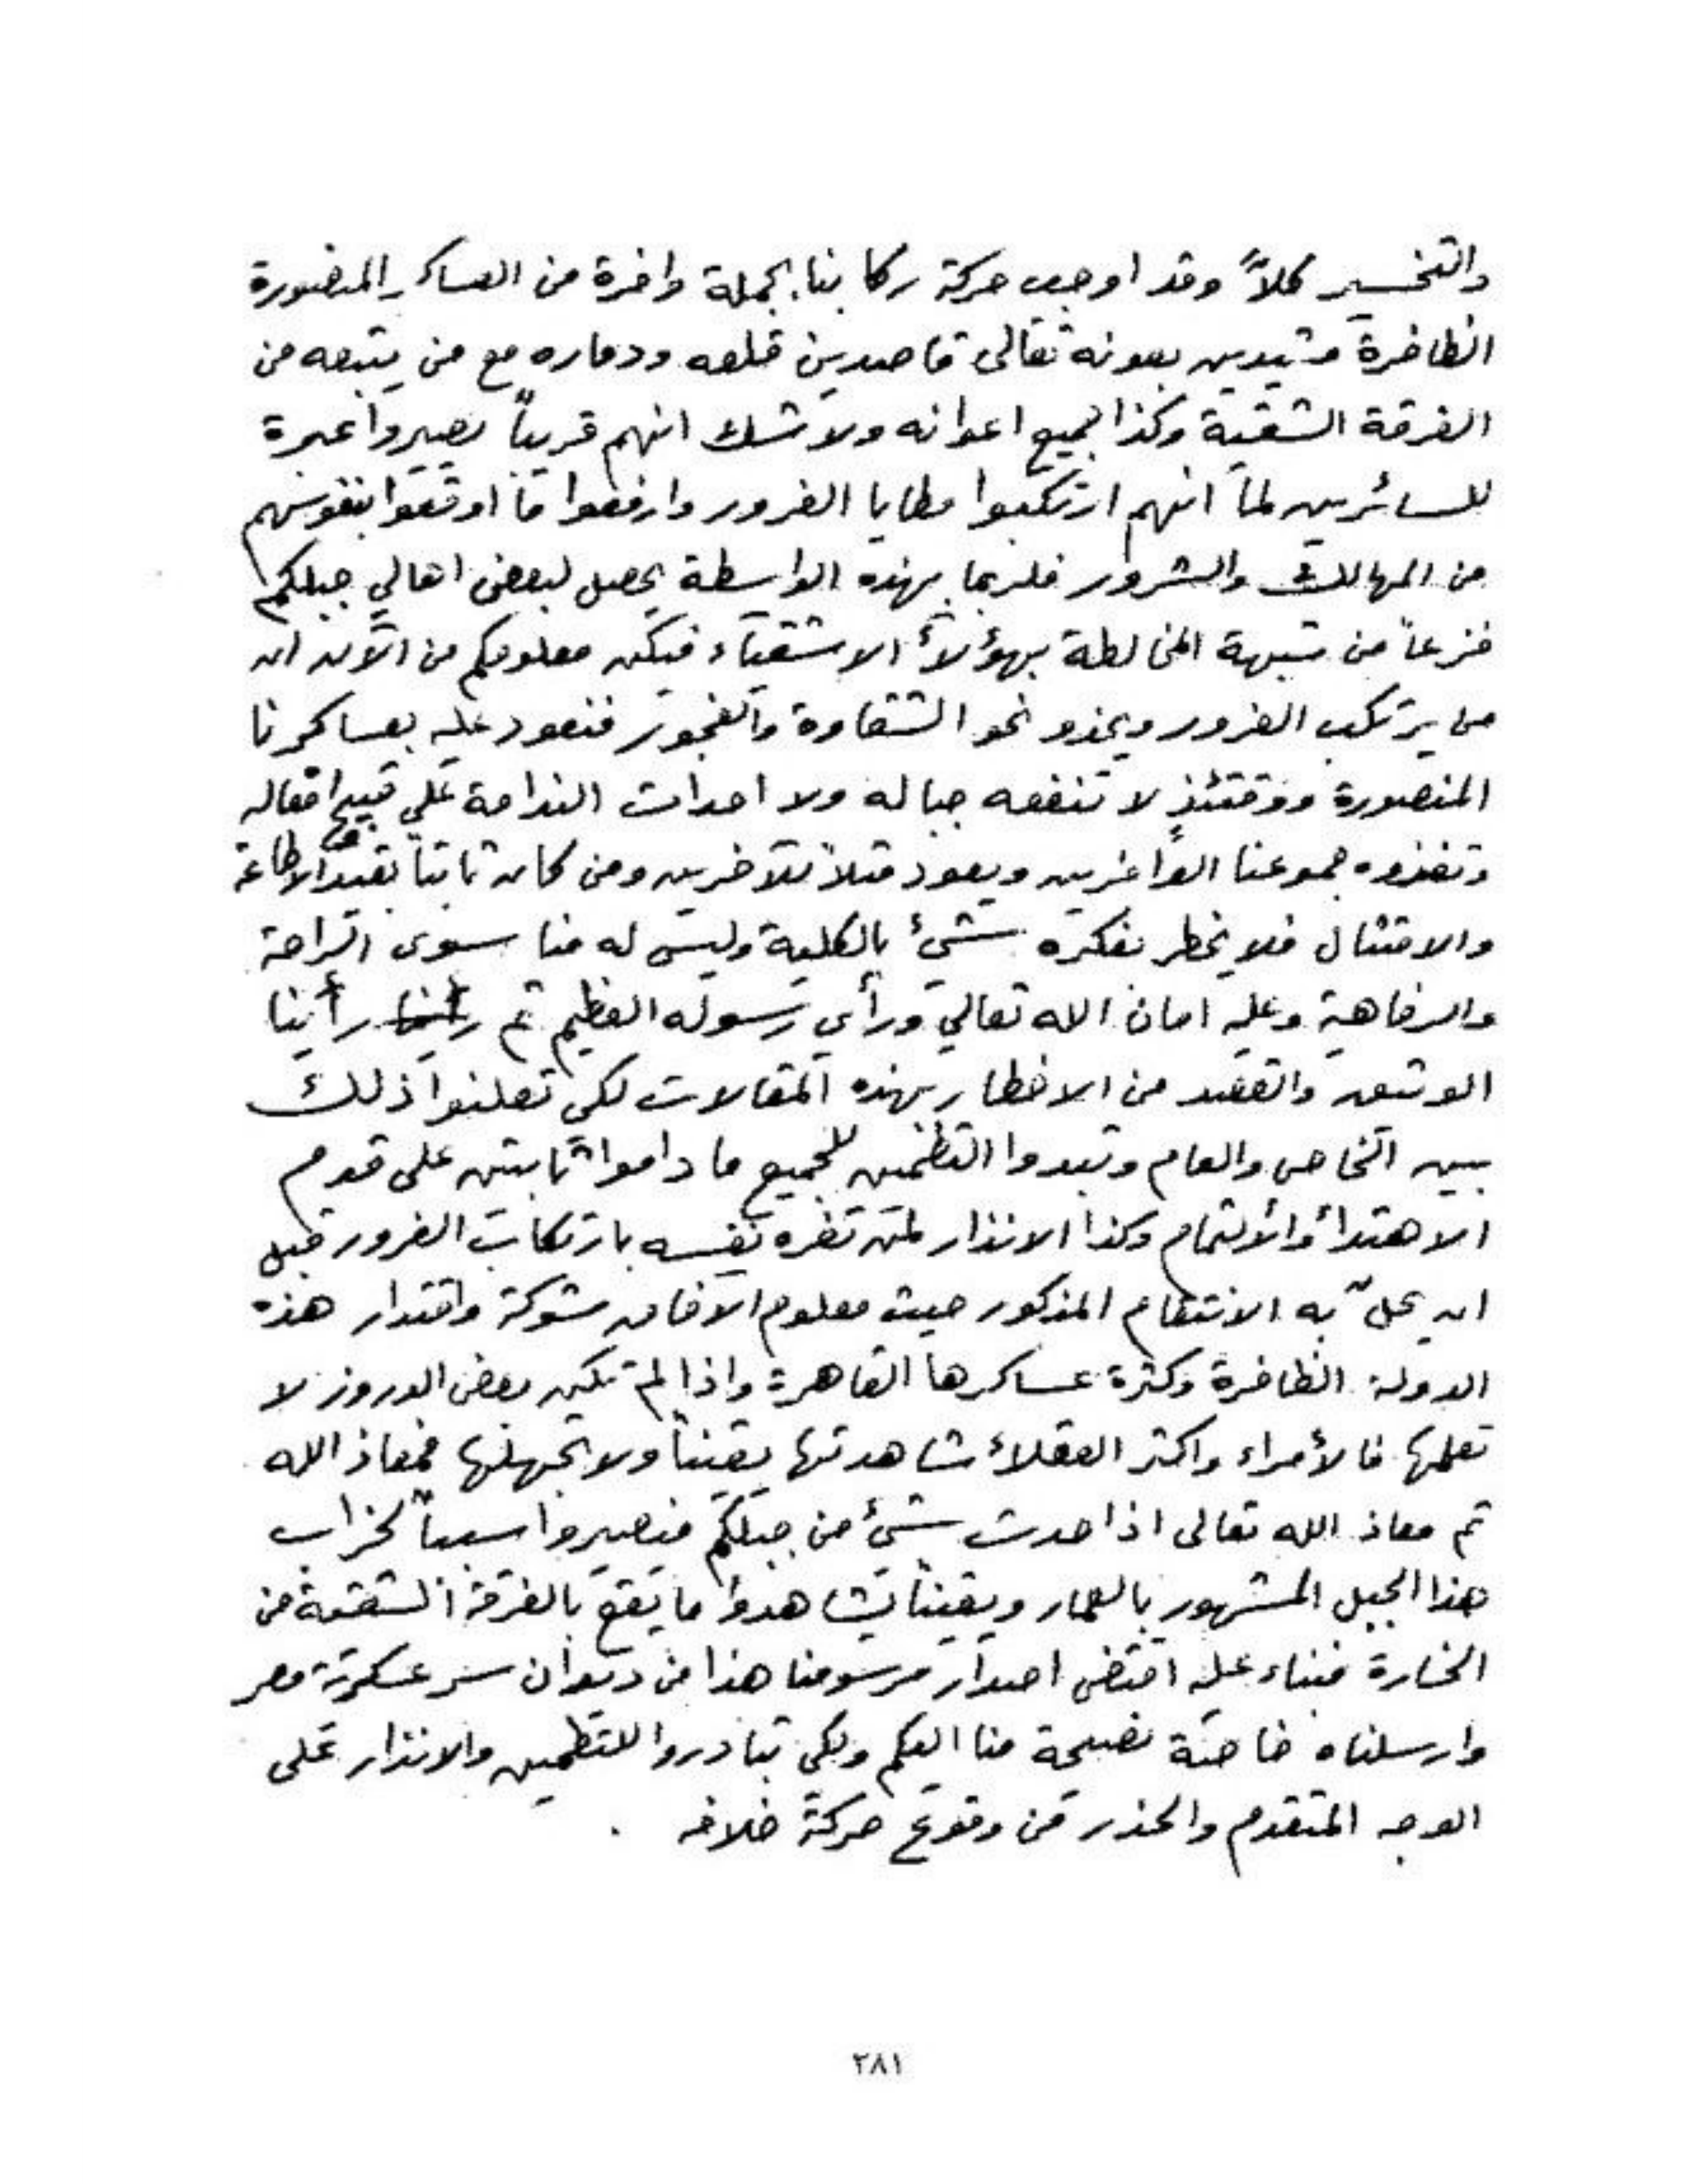 والتخسير كملاً وقد اوجب حركة ركابنا بجملة وافرة من العساكر المنصورة
الظافرة مشيدين بعونه تعالى قاصدين قلعه ودماره مع من يتبعه من
الفرقة الشقية وكذا لجميع اعوانه ولا شك انهم قريباً يصيروا عبرة
للسائرين لما انهم ارتكبوا مطايا الغرور وارفعوا ما اوقعوا بنفوسهم
من المهالك والشرور فلربما بهذه الواسطة يحصل لبعض اهالي جبلكم
فزعاً من شبهة المخالطة بهؤلاء الاشقياء فيكن معلومكم من الآن ان
من يرتكب الغرور ويحذو نحو الشقاوة والفجور فنعود عليه بعساكرنا
المنصورة ووقتئذٍ لا تنفعه جباله ولا احداث الندامة على قبيح افعاله
وتغزوه جموعنا الواغرين ويعود مثلاً للآخرين ومن كان ثابتاً بقيد الاطاعة
والامتثال فلا يخطر بفكره شئ بالكلية وليس له منا سوى الراحة
والرفاهية وعليه امان الله تعالي ورأي رسوله العظيم ثم رأينا رأينا
الوثيق والقصد من الاخطار بهذه المقالات لكي تعلنوا ذلك
بين الخاص والعام وتبدوا التطمين للجميع ما داموا ثابتين على قدوم
الاهتدأ والالتمام وكذا الانذار لمن تغره نفسه بارتكاب الغرور قبل
ان يحلّ به الانتقام المذكور حيث معلوم الآفاق شوكة واقتدار هذه
الدولة الظافرة وكثرة عساكرها القاهرة واذا لم تكن بعض الدروز لا
تعلمها فالأمراء واكثر العقلاء شاهدتها يقيناً ولا تجهلها فمعاذ الله
ثم معاذ الله تعالى اذا حدث شئ من جبلكم فيصيروا سبباً لخراب
هذا الجبل المشهور بالعمار ويقيناً يشاهدوا ما يقع بالفرقة الشقية من
الخسارة فبناء عليه اقتضى اصدار مرسومنا هذا من ديوان سر عسكرية مصر
وارسلناه خاصة نصيحة منا اليكم ولكي تبادروا للتطمين والانذار على
الوجه المتقدم والحذر من وقوع حركة خلافه .
٢٨١